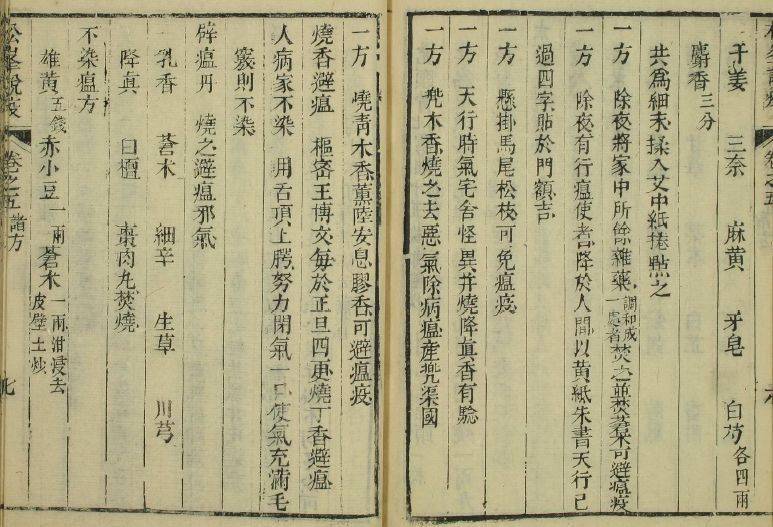 干姜　三奈　麻黄　牙皂　白芍各四兩
麝香三分
共爲細末揉入艾中紙捲點之
一方　除夜將家中所餘雜藥調和成一處者焚之並焚蒼朮可避瘟疫
一方　除夜有行瘟使者降於人間以黄紙朱書天行已
過四字貼於門額吉
一方　懸掛馬尾松枝可免瘟疫
一方　天行時氣宅舍怪異并燒降眞香有驗
一方　兜木香燒之去惡氣除病瘟產兜渠國
一方　燒青木香薰陸安息膠香可避瘟疫
燒香避瘟　樞密王博文每於正旦四更燒丁香避瘟
人病家不染　用舌頂上腭努力閉氣一口使氣充滿毛
竅則不染
辟瘟丹　燒之避瘟邪氣
乳香　蒼朮　細辛　生草　川芎
降眞　白檀　棗肉丸焚燒
不染瘟方
雄黄五錢赤小豆一兩蒼朮一兩泔浸去皮壁土炒
松峯說疫　卷之五諸方